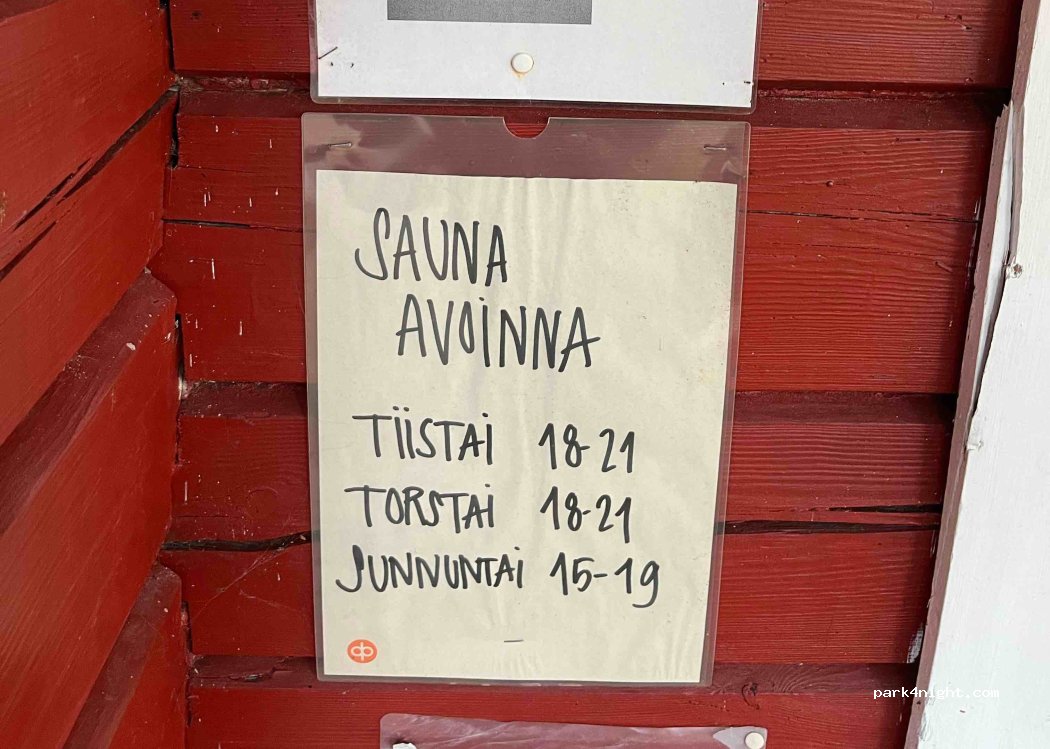 SAUNA
AVOINNA
TIISTAI 18-21
TORSTAI 18-21
SUNNUNTAI 15-19
park4night.com